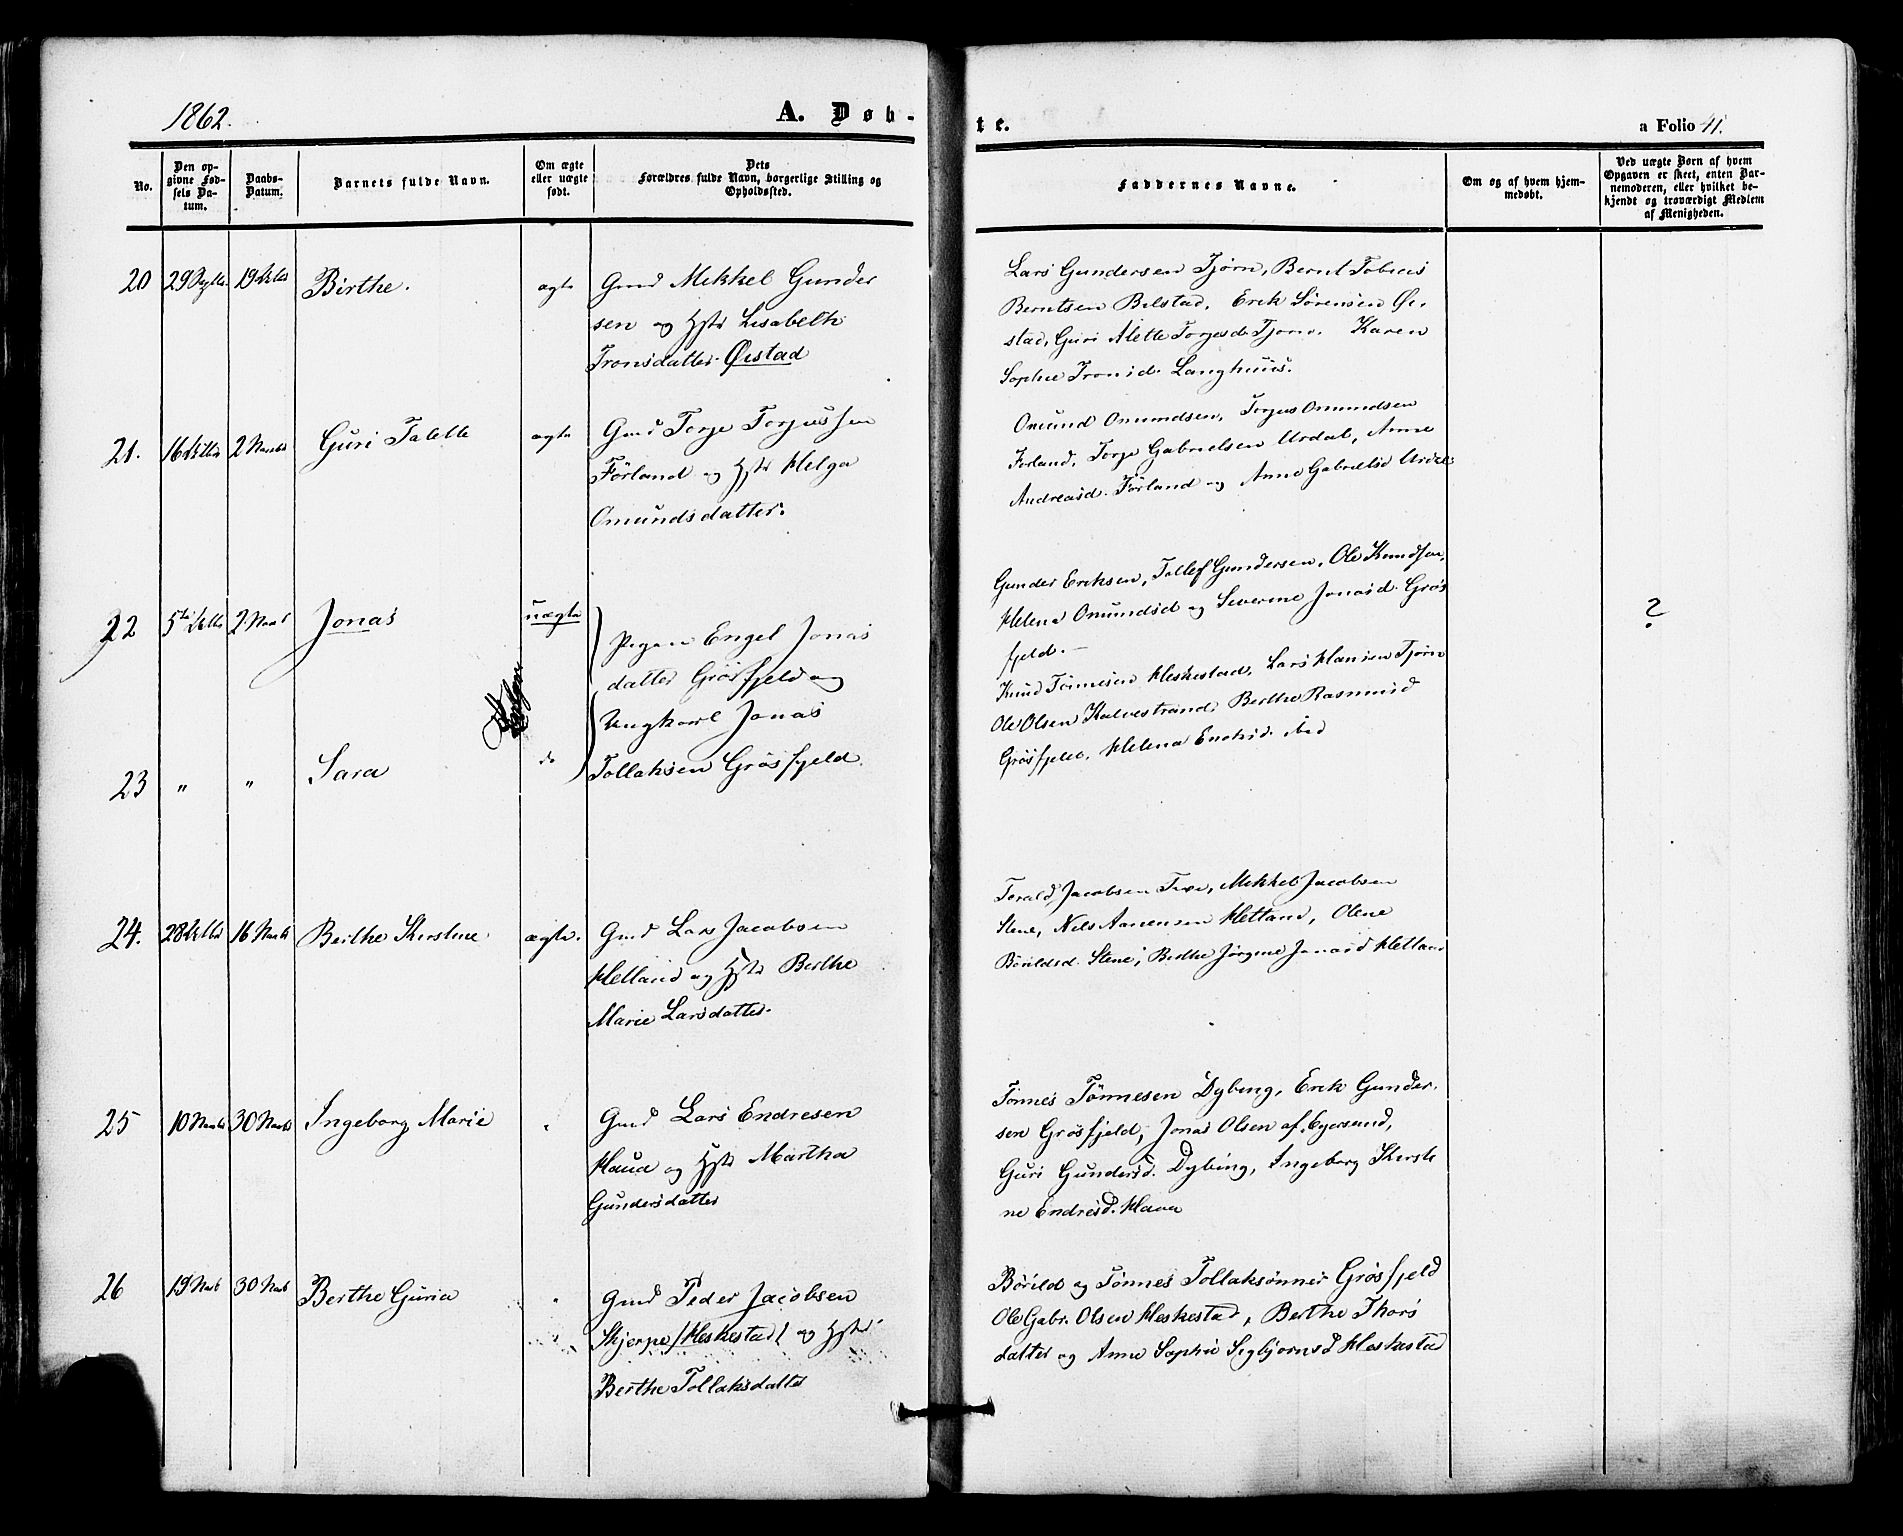 1862.
A. Døb-
te.
a Folio 41.
No.
Den opgivne Fødsels Datum.
Daabs-Datum.
Barnets fulde Navn.
Om ægte eller uægte født.
Dets Forældres fulde Navn, borgerlige Stilling og Opholdssted.
Faddernes Navne.
Om og af hvem hjemmedøbt.
Ved uægte Børn af hvem Opgaven er skeet, enten Barnemoderen, eller hvilket bekjendt og troværdigt Medlem af Menigheden.
20
Birthe.
ægte
Gmd Mikkel Gunder
sen og Hstr Lisabeth
Tronsdatter Østad
Lars Gundersen Tjørn, Bernt Tobias
Berntsen Bilstad, Erik Sørensen Øi-
stad, Guri Alette Torgesd. Tjørn. Karen
Sophie Tronsd. Langhuus.
21.
Guri Talette
ægte
Gmd Torje Torjussen
Förland og Hstr Helga
Omundsdatter.
Omund Omundsen, Torjus Omundsen
Förland, Torje Gabrielsen Urdal, Anne
Andreasd. Förland og Anne Gabrielsd Urdal
22
Jonas
uægte
Pigen Engel Jonas
datter Grøsfjeld og
Ungkarl Jonas
Tollaksen Grøsfjeld.
Gunder Eriksen, Tollef Gundersen, Ole Knudsen,
Helena Omundsd og Severine Jonasd. Grøs
fjeld.-
?
23
"
"
Sara
do
Knud Tönnesen Heskestad, Lars Hansen Tjørn
Ole Olsen Kalvestrand, Berthe Rasmusd
Grøsfjeld, Helena Endresd. ibid
24.
Berthe Kirstine
ægte.
Gmd Lars Jacobsen
Hetland og Hstr Berthe
Marie Larsdatter.
Jacobsen
Mikkel Jacobsen
Stene, Nils Aanensen Hetland, Olene
Börildsd. Stene, Berthe Jörgine Jonasd Hetland
25
10 Novbr
30 Novbr
Ingeborg Marie
Gmd Lars Endresen
Haua og Hstr Martha
Gundersdatter
Tönnes Tönnesen Dybing, Erik Gunder-
sen Grøsfjeld, Jonas Olsen af Egersund,
Guri Gundersd. Dybing, Ingeborg Kirsti
ne Endresd. Haua
26
19 Novb
30 Novb
Berthe Guria
Gmd Peder Jacobsen
Skjerpe /Heskestad/ og Hstr
Berthe Tollaksdatter
Börild og Tönnes Tollaksønner Grøsfjeld
Ole Gabr. Olsen Heskestad, Berthe Thors
datter og Anne Sophie Sigbjørnsd Heskestad